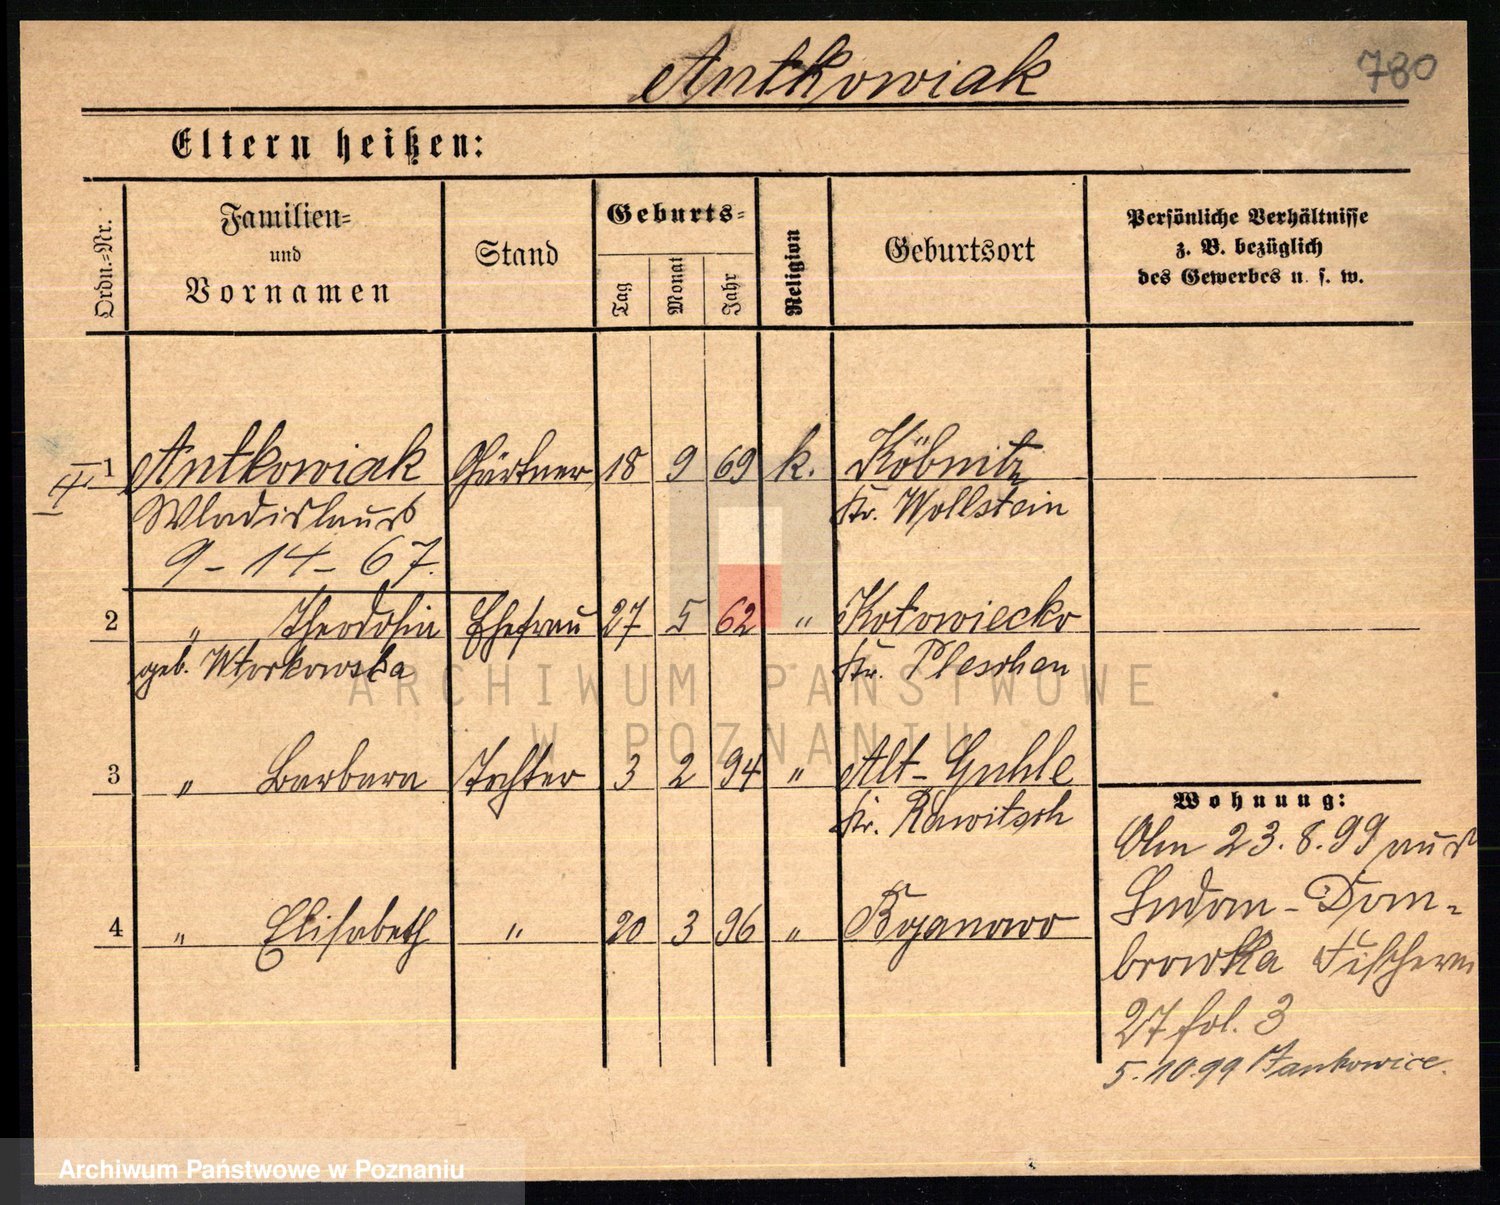 Antkowiak
780
Eltern heißen:
Ordn.-Nr.
Familien-
und
Vornamen
Stand
Geburts-
Tag
Monat
Jahr
Religion
Geburtsort
Persönliche Verhältnisse
z. B. bezüglich
des Gewerbes u. s. w.
1 Antkowiak Gärtner 18 9 69 k. Köbnitz
Wladislaus Kr. Wollstein
9 - 14 - 67.
2 " Theodosia Ehefrau 27 5 62 " Kotowiecko
geb. Wtorkowska Kr. Pleschen
3 " Barbara Tochter 3 2 94 " Alt-Guhle
Kr. Rawitsch
4 " Elisabeth " 20 3 96 " Bojanowo
Wohnung:
Am 23.8.99 aus
Ludom-Dom-
browka Fischerei
27 fol. 3
5.10.99 Jankowice.
ARCHIWUM PAŃSTWOWE
W POZNANIU
Archiwum Państwowe w Poznaniu